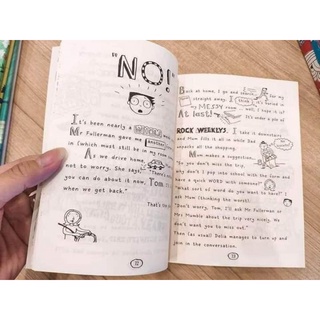 "NO!"
It's been nearly a WHOLE
Mr Fullerman gave me another
in (which must still be in my room
As we drive home,
not to worry. She says,
you can do about it now, Tom
when we get back."
That's the
12
Back at home, I go and search for my
straight away. I think it's buried in
my MESSY room
At last!
ROCK WEEKLYS. I take it downstairs
and Mum fills it in while Dad
unpacks all the shopping.
Mum makes a suggestion,
"So you don't miss the trip,
why don't I pop into school with the form and
have a quick WORD with someone?"
"What sort of word do you want to have?" I
ask Mum (thinking the worst).
"Don't worry, Tom. I'll ask Mr Fullerman or
Mrs Mumble about the trip very nicely. We
don't want you to miss out."
Then (as usual) Delia manages to turn up and
join in the conversation.
13